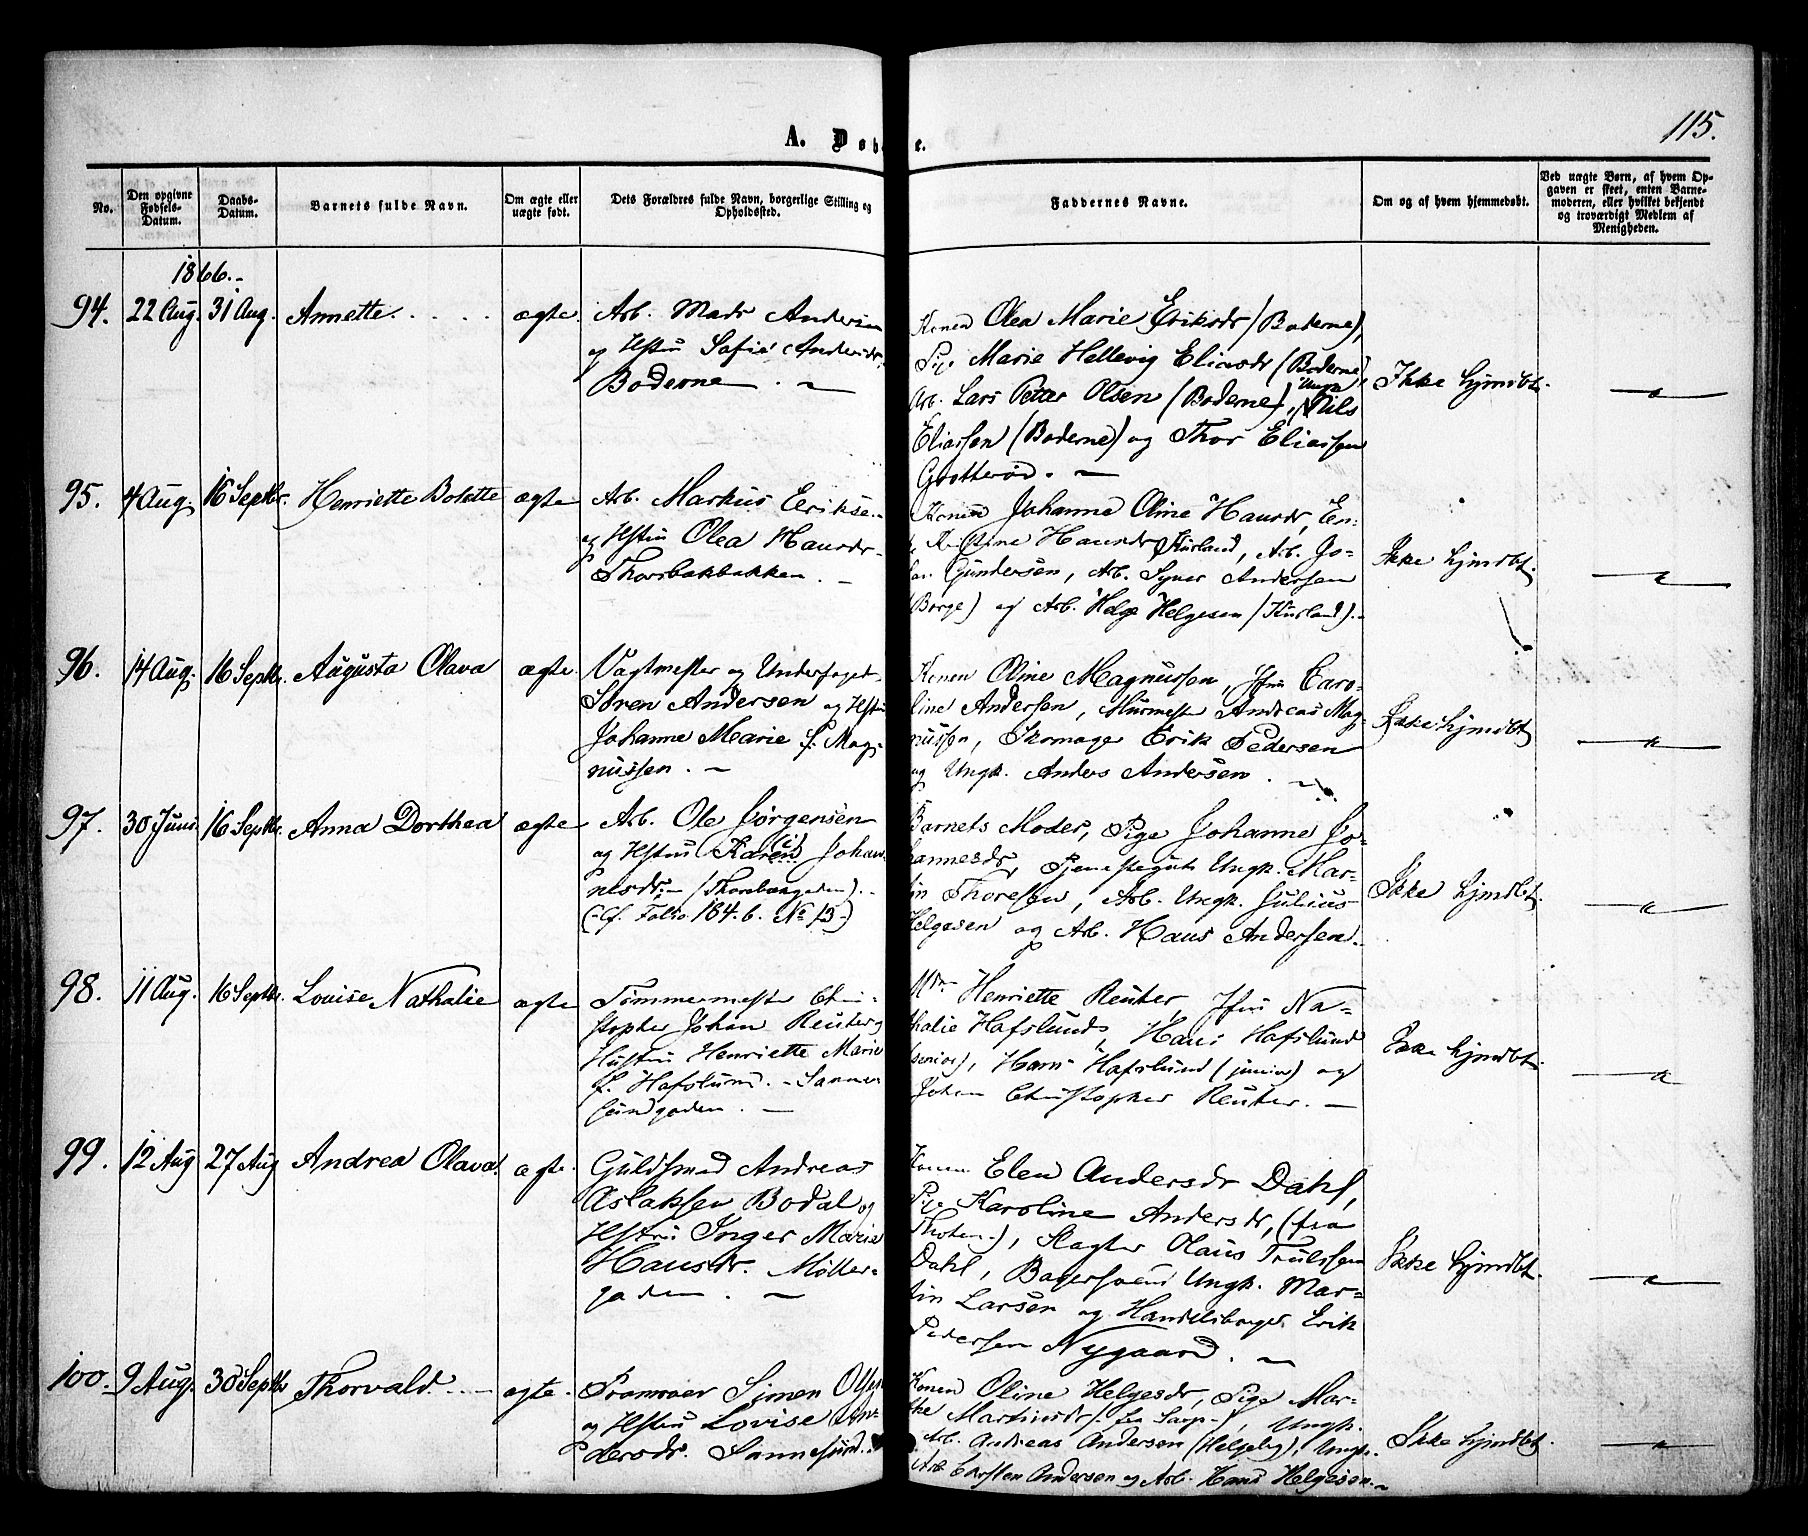 115.
A. Døb e.
No.
Den opgivne Fødsels-Datum.
Daabs-Datum.
Barnets fulde Navn.
Om ægte eller uægte født.
Dets Forældres fulde Navn, borgerlige Stilling og Opholdssted.
Faddernes Navne.
Om og af hvem hjemmedøbt.
Ved uægte Børn, af hvem Opgaven er skeet, enten Barnemoderen, eller hvilket bekjendt og troværdigt Medlem af Menigheden.
1866.-
94. 22 Aug. 31 Aug. Annette. ægte.
Arb. Mads Andersen
og Hstru Safie Andersdr.
Boderne. -
Konen Olea Marie Eriksdr (Boderne),
Pige Marie Hellevig Eliasdr (Boderne),
Arb. Lars Petter Olsen (Boderne), Ungk. Nils
Eliassen (Boderne) og Thor Eliassen
Grotterød. -
Ikke hjmdbt.
95. 4 Aug. 16 Septbr. Henriette Bolette ægte
Arb. Markus Eriksen
og Hstru Olea Hansdr
Thorsbakbakken. -
Konen Johanne Oline Hansdr, En-
ke Kristine Hansdr Kurland, Arb. Jo-
han Gundersen, Arb. Syver Andersen
(Borge) og Arb. Helge Helgesen (Kurland).-
Ikke hjmdbt.
96. 14 Aug. 16 Septbr. Augusta Olava ægte.
Vagtmester og Underfoget
Søren Andersen og Hstru
Johanne Marie f. Mag-
nussen. -
Konen Oline Magnussen, Jfru Caro-
line Andersen, Murmester Andreas Mag-
nussen, Skomager Erik Pedersen
og Ungk. Anders Andersen. -
Ikke hjmdbt
97. 30 Juni 16 Septbr. Anna Dorthea ægte
Arb. Ole Jørgensen
og Hstru Karen (!) Johan-
nesdr.- (Thorsbækgaden).-
(Cf. Folio 184.b. No 13-)
Barnets Moder, Pige Johanne Jo-
hannesdr, Tjenestegut Ungk. Mar-
tin Thoresen, Arb. Ungk. Julius
Helgesen og Arb. Hans Andersen.
Ikke hjmdbt.
98. 11 Aug. 16 Septbr. Louise Nathalie ægte
Tømmermester Chri-
stopher Johan Reuter og
Hustru Henriette Marie
f. Hafslund. - Sanne-
sundgaden. -
Mdm Henriette Reuter, Jfru Na-
thalie Hafslund, Hans Hafslund
(senior), Hans Hafslund (junior) og
Johan Christopher Reuter. -
Ikke hjmdbt.
99. 12 Aug 27 Aug Andrea Olava. ægte.
Guldsmed Andreas
Aslaksen Bodal og
Hstru Inger Marie
Hansdr. Møller-
gaden. -
Konen Elen Andersdr Dahl,
Pige Karoline Andersdr, (fra
Thoten.), Slagter Olaus Trulssen
Dahl, Bagersvend Ungk. Mar-
tin Larsen og Handelsborger Erik
Pedersen Nygaard. -
Ikke hjmdbt.
100. 9 Aug. 30 Septbr Thorvald. ægte.
Pramroer Simen Olsen
og Hstru Lovise An-
dersdr. Sannesund.
Konen Oline Helgesdr, Pige Mar-
the Martinsdr (fra Sarp-), Ungk.
Arb. Andreas Andersen (Helgeby), Ungk.
Arb. Carsten Andersen og Arb. Hans Helgesen.-
Ikke hjmdbt.